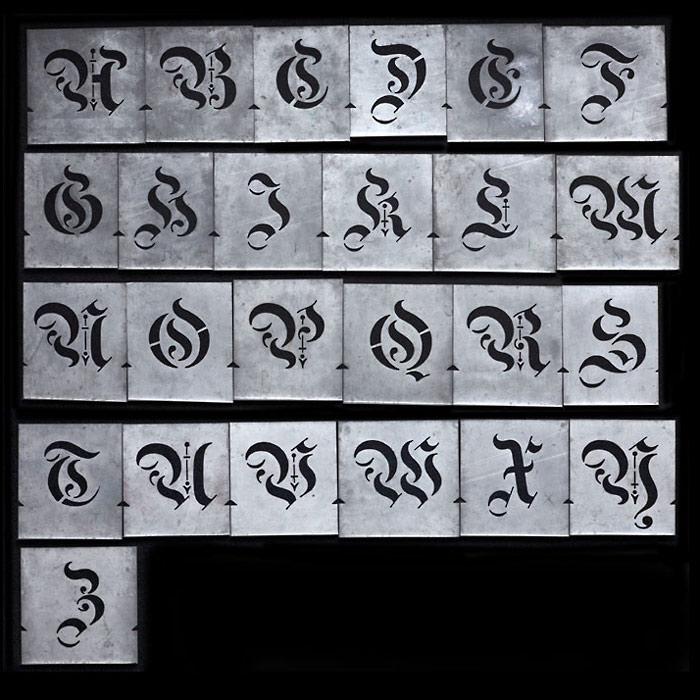 A B C D E F
G H I K L M
N O P Q R S
T U V W X Y
Z